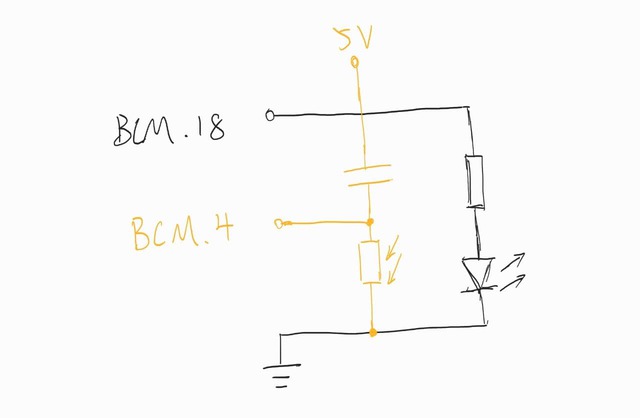 5V
BCM.18
BCM.4